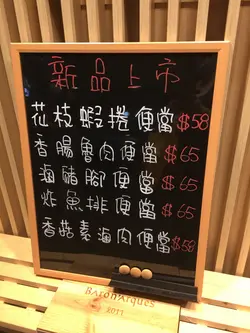 新品上市
花枝蝦捲便當$58
香腸魯肉便當$65
滷豬腳便當$65
炸魚排便當$65
香菇素滷肉便當$58
BARONARQUES
2011